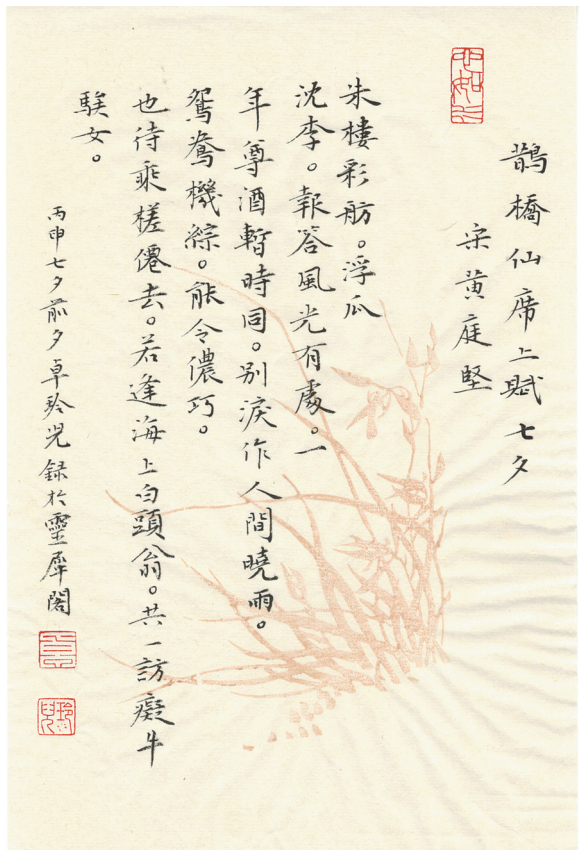 鵲橋仙席上賦七夕
宋黃庭堅
朱樓彩舫。浮瓜
沈李。報答風光有處。一
年尊酒暫時同。別淚作人間曉雨。
鴛鴦機綜。能令儂巧。
也待乘槎僊去。若逢海上白頭翁。共一訪癡牛
騃女。
丙申七夕前夕卓玲兒錄於靈犀閣